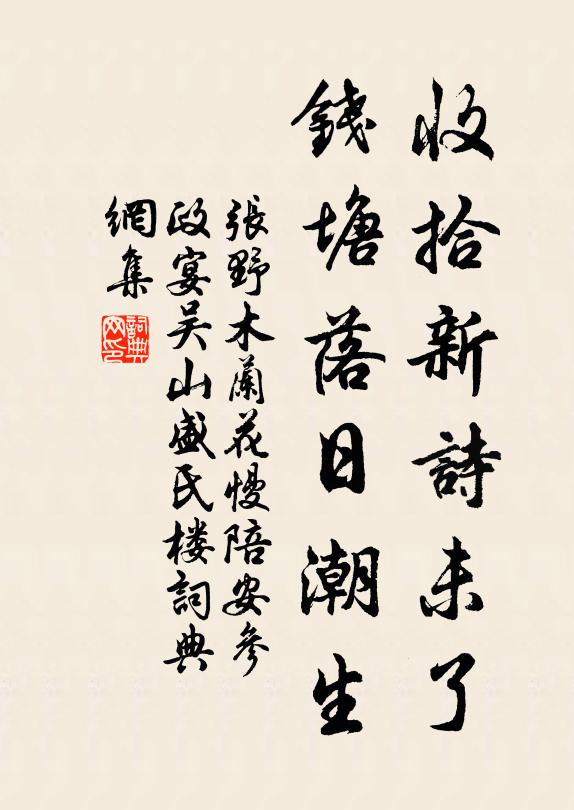 收拾新詩未了
錢塘落日潮生
張野木蘭花慢陪安參
政宴吴山盛氏楼詞典
網集
詞典网印